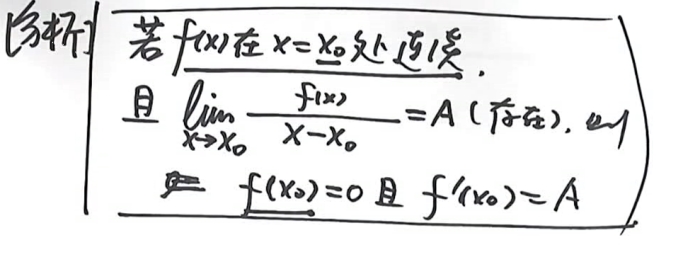 [分析] 若 f(x) 在 x=x₀ 处连续,
且 lim x→x₀ f(x)/(x-x₀) = A (存在), 则
f(x₀)=0 且 f'(x₀)=A